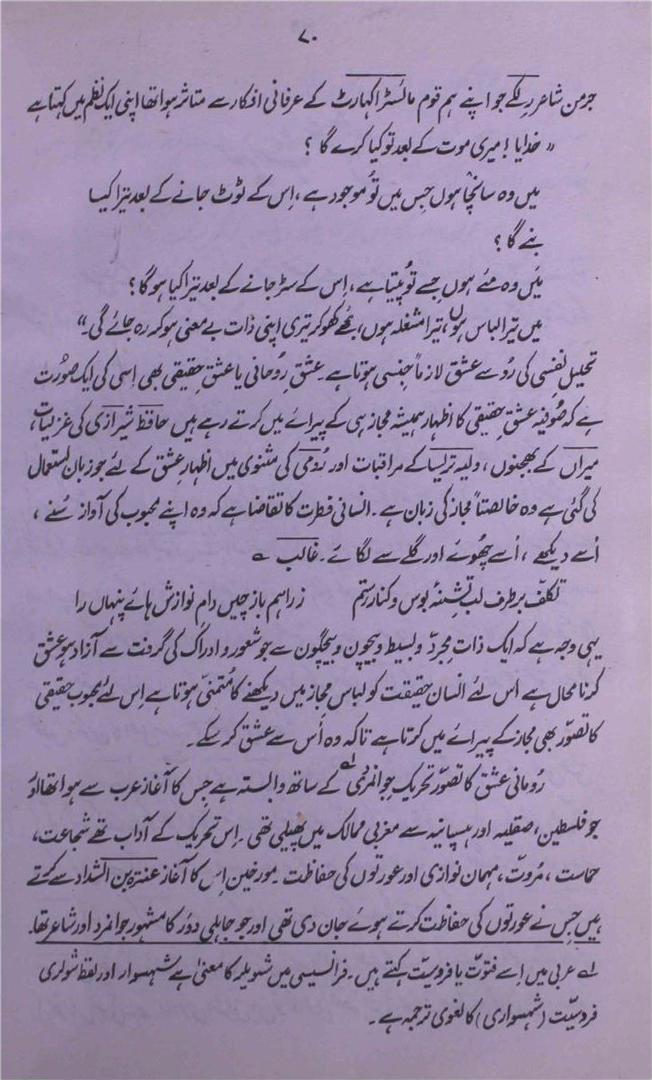 ۷۰
جرمن شاعر رلکے جو اپنے ہم قوم مائسٹر اکہارٹ کے عرفانی افکار سے متاثر ہوا تھا اپنی ایک نظم میں کہتا ہے
" خدایا! میری موت کے بعد تو کیا کرے گا ؟
میں وہ سانچا ہوں جس میں تُو موجود ہے ، اِس کے ٹوٹ جانے کے بعد تیرا کیا
بنے گا ؟
میں وہ مئے ہوں جسے تو پیتا ہے ، اِس کے سڑ جانے کے بعد تیرا کیا ہو گا ؟
میں تیرا لباس ہوں، تیرا مشغلہ ہوں، مجھے کھو کر تیری اپنی ذات بے معنی ہو کہ رہ جائے گی ۔"
تحلیل نفسی کی رُو سے عشق لازماً جنسی ہوتا ہے ۔ عشقِ رُوحانی یا عشقِ حقیقی بھی اِسی کی ایک صُورت
ہے کہ صُوفیہ عشقِ حقیقی کا اظہار ہمیشہ مجاز ہی کے پیرائے میں کرتے رہے ہیں حافظ شیرازی کی غزلیات،
میراں کے بھجنوں ، ولیہ تریسا کے مراقبات اور رُومی کی مثنوی میں اظہارِ عشق کے لئے جو زبان استعمال
کی گئی ہے وہ خالصتاً مجاز کی زبان ہے ۔ انسانی فطرت کا تقاضا ہے کہ وہ اپنے محبوب کی آواز سُنے ،
اُسے دیکھے ، اُسے چھُوئے اور گلے سے لگائے ۔ غالب ؎
تکلّف برطرف لب تشنۂ بوس و کنارستم ز راہم باز چیں دام نوازش ہائے پنہاں را
یہی وجہ ہے کہ ایک ذات مجرّد و بسیط و بیچون و بیچگون سے جو شعور و ادراک کی گرفت سے آزاد ہو عشق
کرنا محال ہے اس لئے انسان حقیقت کو لباسِ مجاز میں دیکھنے کا متمنّی ہوتا ہے اِس لئے محبوب حقیقی
کا تصوّر بھی مجاز کے پیرائے میں کرتا ہے تاکہ وہ اُس سے عشق کر سکے ۔
رُومانی عشق کا تصوّر تحریکِ جوانمردی ؎۱ کے ساتھ وابستہ ہے جس کا آغاز عرب سے ہوا تھا اور
جو فلسطین، صقلیہ اور ہسپانیہ سے مغربی ممالک میں پھیلی تھی ۔ اِس تحریک کے آداب تھے شجاعت،
حماست ، مُروّت ، مہمان نوازی اور عورتوں کی حفاظت ۔ مورخین اِس کا آغاز عنترہ بن الشداد سے کرتے
ہیں جس نے عورتوں کی حفاظت کرتے ہوئے جان دی تھی اور جو جاہلی دَور کا مشہور جوانمرد اور شاعر تھا۔
؎۱ عربی میں اِسے فتوّت یا فروسیت کہتے ہیں ۔ فرانسیسی میں شویلر کا معنیٰ ہے شہسوار اور لفظ شولری
فروسیّت (شہسواری) کا لغوی ترجمہ ہے ۔